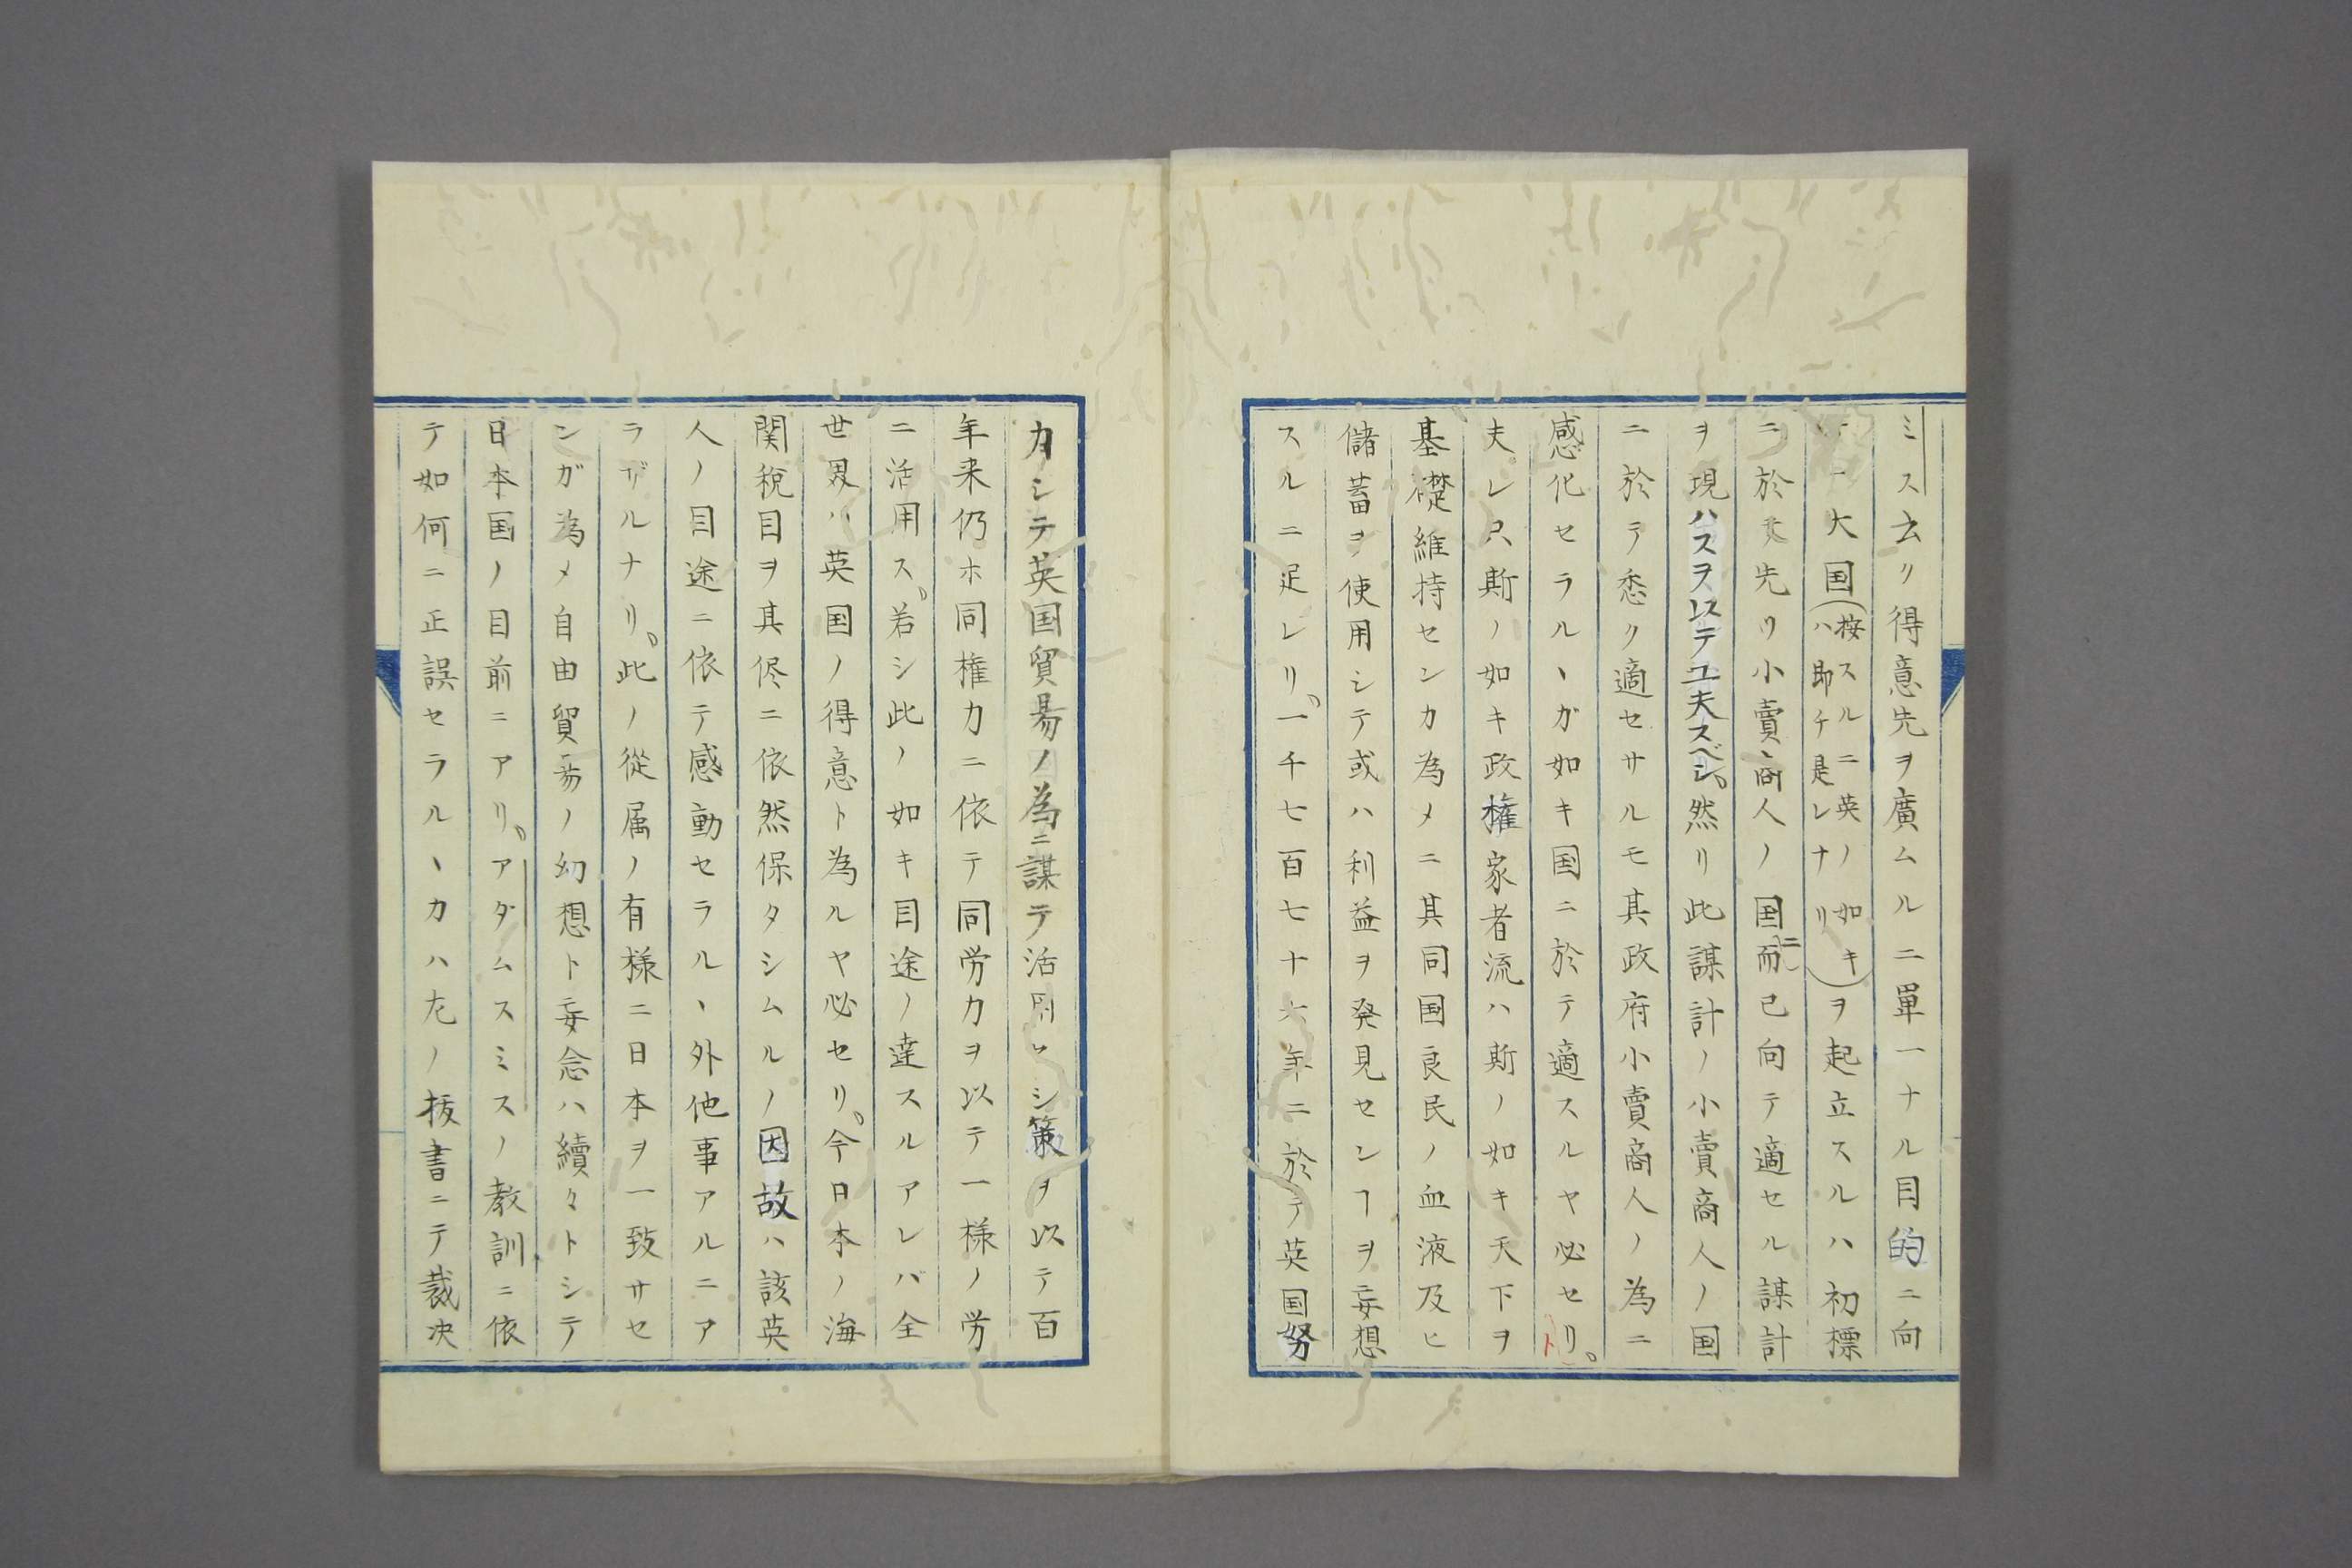 ミス云ク得意先ヲ廣ムルニ單一ナル目的ニ向
一大国(按スルニ英ノ如キハ即チ是レナリ)ヲ起立スルハ初標
ニ於先リ小賣商人ノ国ニ而已向テ適セル謀計
ヲ現ハスヲ以テ工夫スベシ。然リ此謀計ノ小賣商人ノ国
ニ於テ悉ク適セサルモ其政府小賣商人ノ為ニ
感化セラルヽガ如キ国ニ於テ適スルヤ必セリ。
夫レ只斯ノ如キ政権家者流ハ斯ノ如キ天下ヲ
基礎維持センカ為メニ其同国良民ノ血液及ヒ
儲蓄ヲ使用シテ或ハ利益ヲ発見センヿヲ妄想
スルニ足レリ。一千七百七十六年ニ於テ英国努
力シテ英国貿易ノ為ニ謀テ活用シ策ヲ以テ百
年来仍ホ同権力ニ依テ同労力ヲ以テ一様ノ労
ニ活用ス。若シ此ノ如キ目途ノ達スルアレバ全
世界ハ英国ノ得意ト為ルヤ必セリ。今日本ノ海
関税目ヲ其侭ニ依然保タシムルノ因故ハ該英
人ノ目途ニ依テ感動セラルヽ外他事アルニア
ラザルナリ。此ノ從属ノ有様ニ日本ヲ一致サセ
ンガ為メ自由貿易ノ幻想ト妄念ハ續々トシテ
日本国ノ目前ニアリ。アダムスミスノ教訓ニ依
テ如何ニ正誤セラルヽカハ左ノ抜書ニテ裁决